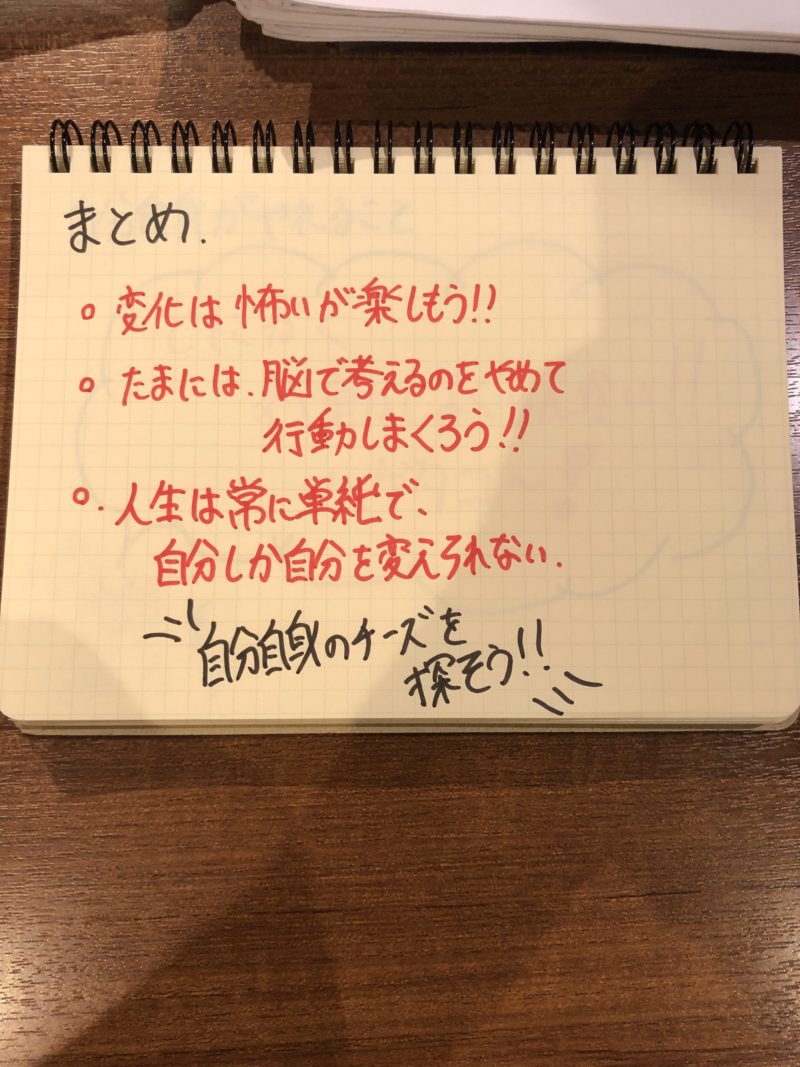 まとめ.
○ 変化は怖いが楽しもう!!
○ たまには.脳で考えるのをやめて
行動しまくろう!!
○. 人生は常に単純で、
自分しか自分を変えられない.
自分自身のチーズを
探そう!!